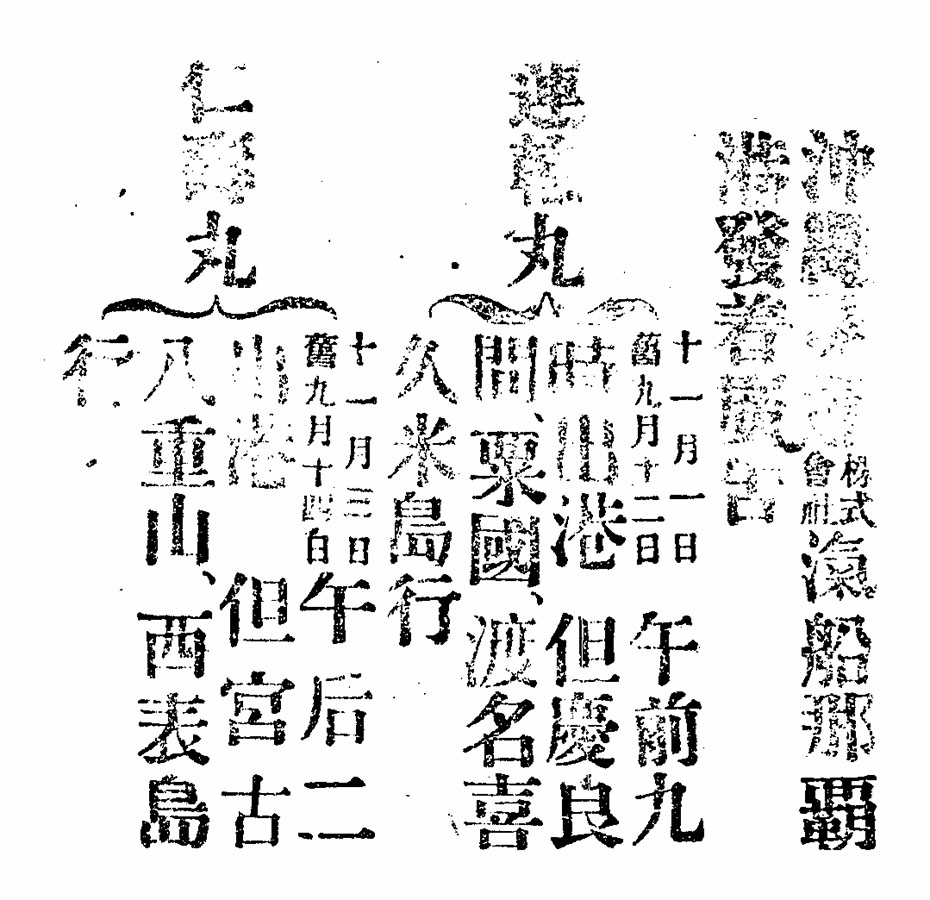 沖繩株式會社滊船那覇
港發着廣告
運輸丸
十一月一日
舊九月十二日
午前九
時出港 但慶良
間、粟國、渡名喜
久米島行
仁壽丸
十一月三日
舊九月十四日
午后二
出港 但宮古
八重山、西表島
行